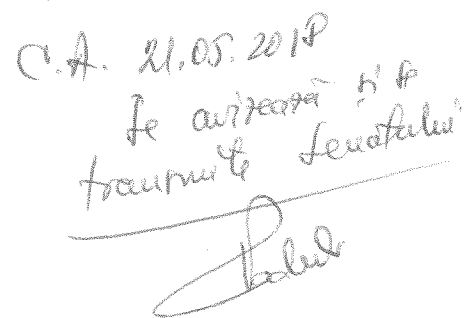 C.A. 21.05.2018
Se avizează și se
transmite Senatului